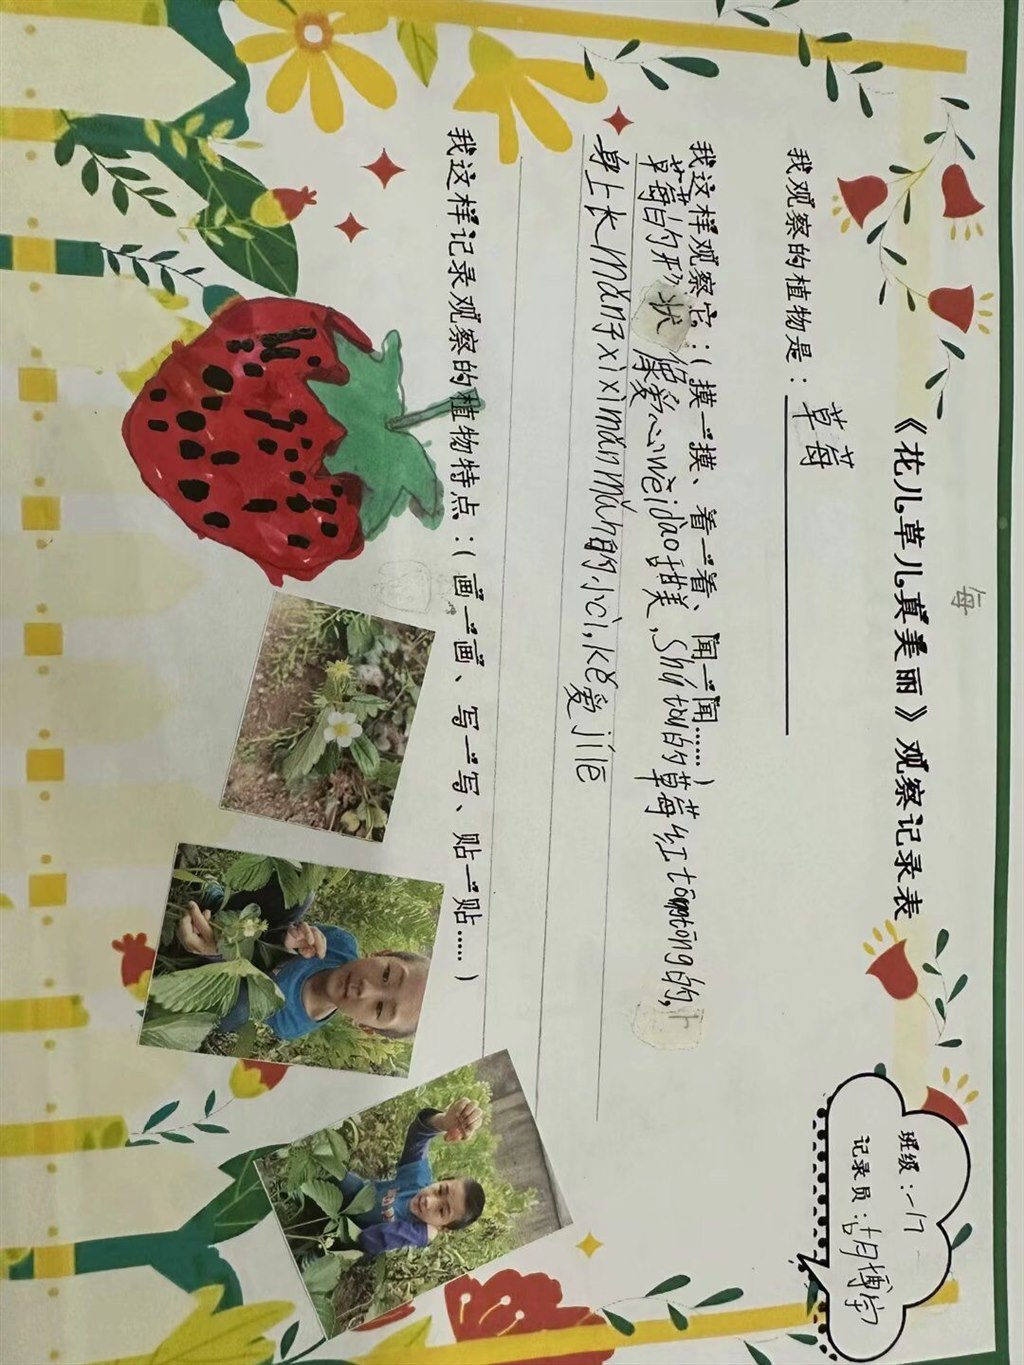 每
《花儿草儿真美丽》观察记录表
班级：一/7
记录员：胡博宇
我观察的植物是：草莓
我这样观察它：（摸一摸、看一看、闻一闻……）
草莓的形状像爱心wèidào甜美，Shútòu的草莓红tōngtōng的，
身上长mǎn了xìxìmǎnmǎn的小cì，kě爱jíle
我这样记录观察的植物特点：（画一画、写一写、贴一贴……）